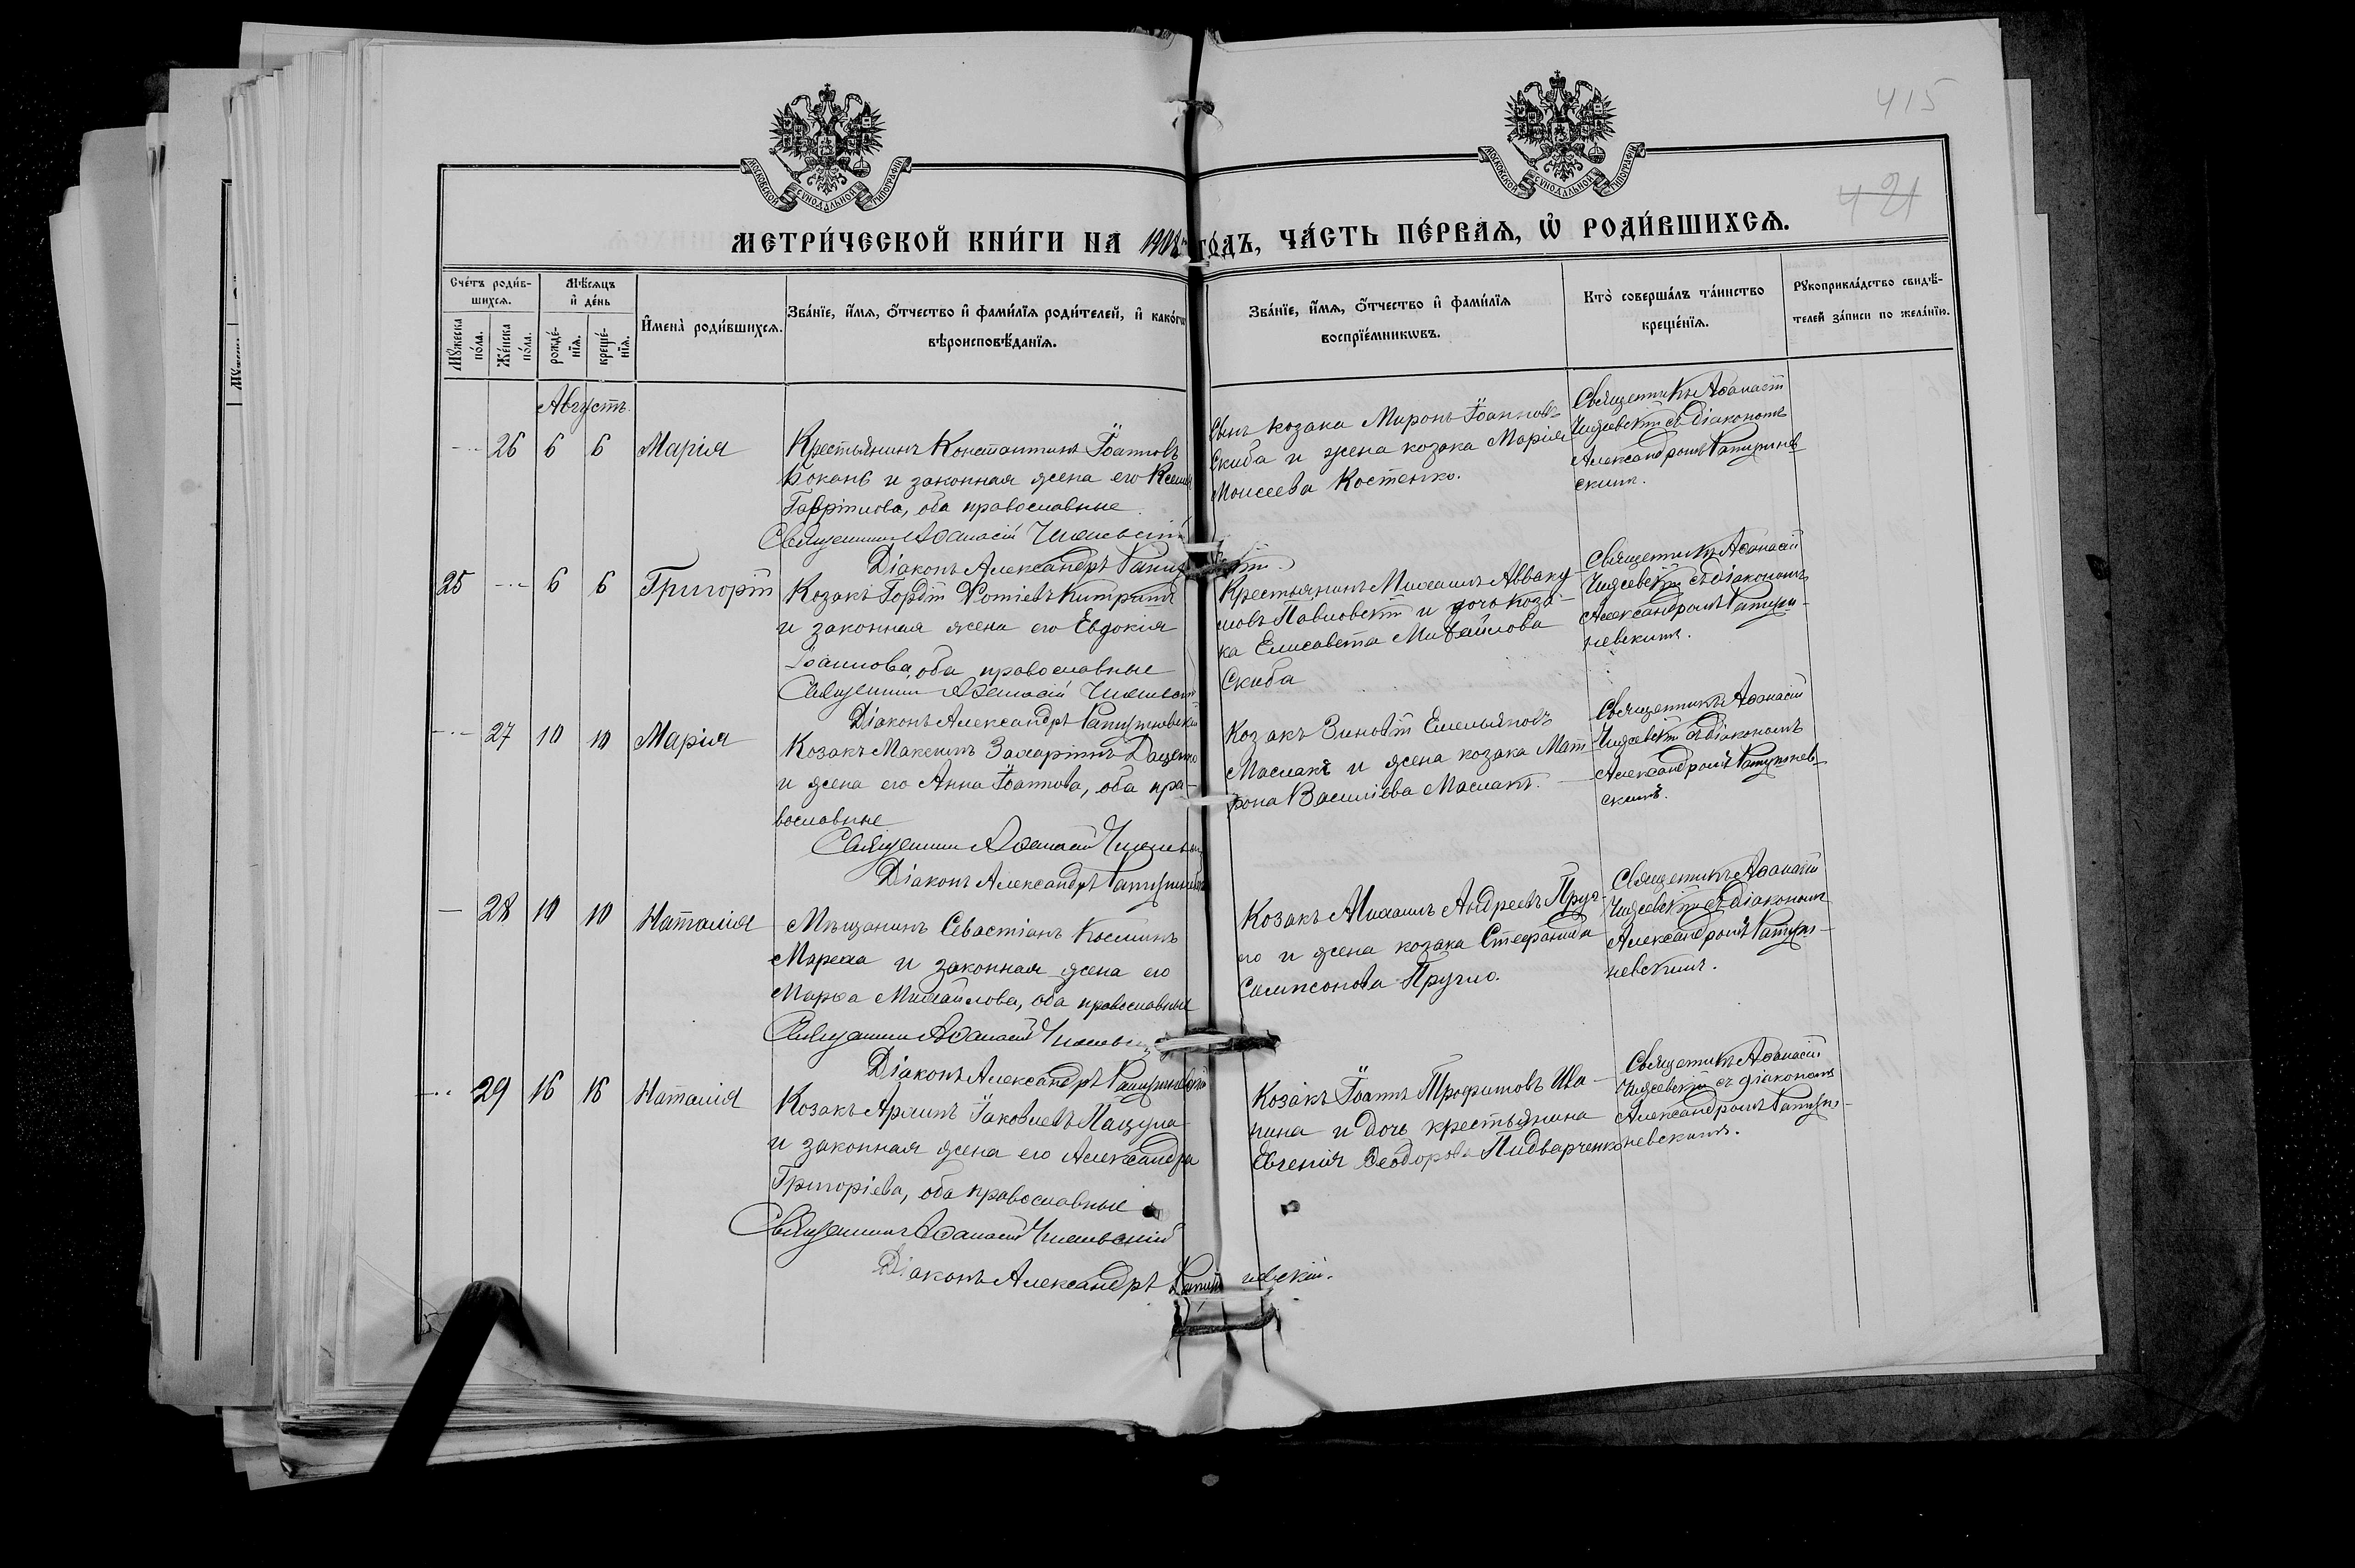 415
421
МОСКОВСКОЙ СѴНОДАЛЬНОЙ ТИПОГРАФІИ
МОСКОВСКОЙ СѴНОДАЛЬНОЙ ТИПОГРАФІИ
МЕТРИ́ЧЕСКОЙ КНИ́ГИ НА 1908 ГО́ДЪ, ЧА́СТЬ ПЕ́РВАѦ, Ѡ҆ РОДИ́ВШИХСѦ.
Сче́тъ роди́в-
шихсѧ.
Мꙋ́жеска по́ла.
Же́нска по́ла.
Мѣ́сѧцъ
и҆ де́нь
рожде́-
нїѧ.
креще́-
нїѧ.
И҆мена̀ роди́вшихсѧ.
Зва́нїе, и҆́мѧ, ѻ҆́тчество и҆ фами́лїѧ роди́телей, и҆ како́гѡ
вѣроисповѣ́данїѧ.
Зва́нїе, и҆́мѧ, ѻ҆́тчество и҆ фами́лїѧ
воспрїе́мникѡвъ.
Кто̀ соверша́лъ та́инство
креще́нїѧ.
Рꙋкоприкла́дство свидѣ́-
телей за́писи по жела́нїю.
Августъ.
26 6 6 Марія
Крестьянинъ Константинъ Іоанновъ
Бокань и законная жена его Ксенія
Гавріилова, оба православные
Священникъ Аѳанасій
Діаконъ Александръ
Сынъ козака Миронъ Іоанновъ
Скиба и жена козака Марія
Моисеева Костенко.
Священникъ Аѳанасій
съ діакономъ
Александромъ
скимъ.
25 6 6 Григорій
Козакъ Гордій
и законная жена его Евдокія
Іоаннова, оба православные
Священникъ Аѳанасій
Діаконъ Александръ
Крестьянинъ Михаилъ Авваку
мовъ Павловскій и дочь коза-
ка Елисавета Михайлова
Скиба
Священникъ Аѳанасій
съ діакономъ
Александромъ
невскимъ.
27 10 10 Марія
Козакъ Максимъ Захаріинъ Даценко
и жена его Анна Іоаннова, оба пра-
вославные
Священникъ Аѳанасій
Діаконъ Александръ
Козакъ Зиновій Емельяновъ
Маслакъ и жена козака Мат-
рона Василіева Маслакъ.
Священникъ Аѳанасій
съ діакономъ
Александромъ
скимъ.
28 10 10 Наталія
Мѣщанинъ Севастіанъ Косминъ
и законная жена его
Марѳа Михайлова, оба православные
Священникъ Аѳанасій
Діаконъ Александръ
Козакъ Михаилъ Андреевъ Пруг-
ло и жена козака Стефанида
Сампсонова Пругло.
Священникъ Аѳанасій
съ діакономъ
Александромъ
невскимъ.
29 16 16 Наталія
Козакъ Іаковлевъ Пацула
и законная жена его Александра
Григоріева, оба православные
Священникъ Аѳанасій
Діаконъ Александръ
Козакъ Іоаннъ Трофимовъ
и дочь крестьянина
Евгенія Ѳеодорова Пидварченко
Священникъ Аѳанасій
съ діакономъ
Александромъ
невскимъ.